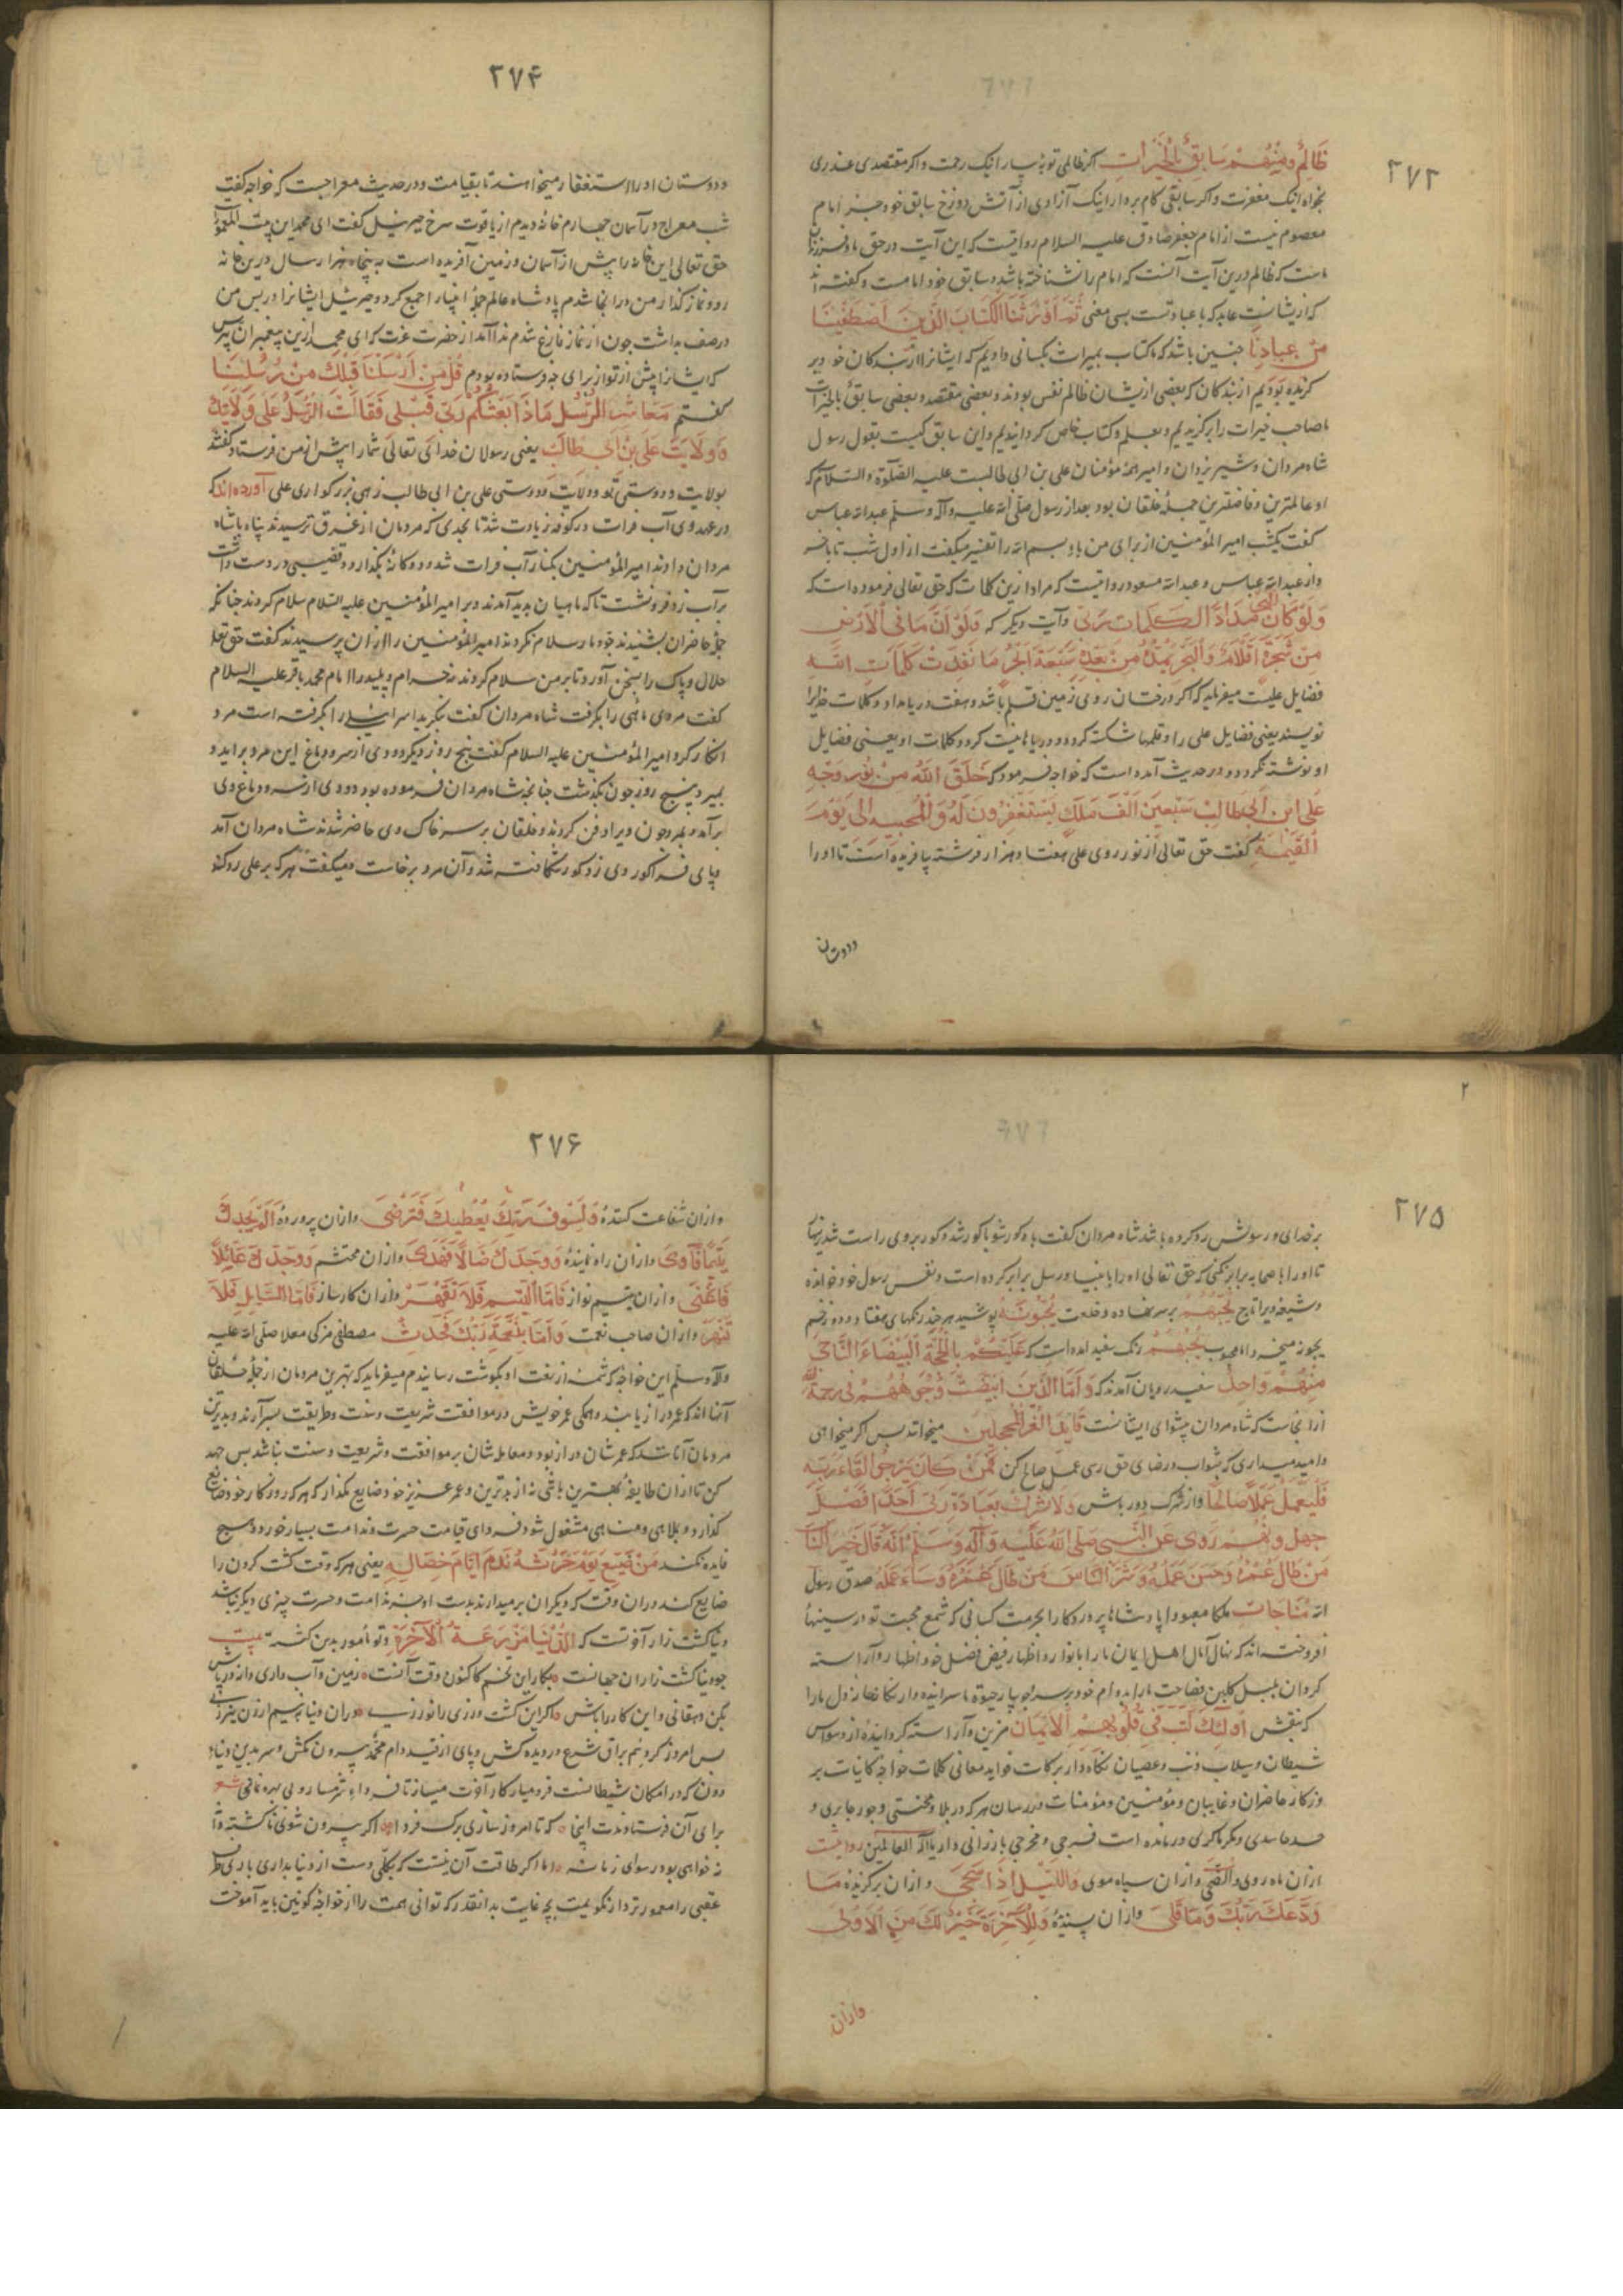 ۲۷۳
ظَالِمٌ وَمِنْهُمْ سَابِقٌ بِالْخَيْرَاتِ اکر ظالمی توبه بیار اینک رحمت واکر مقتصدی عذری
بخواه اینک مغفرت واکر سابقی کام بردار اینک آزادی از آتش دوزخ سابق خود جز امام
معصوم نیست از امام جعفر صادق علیه السلام روایتست که این آیت در حق ما و فرزندان
ماست که ظالم درین آیت آنست که امام را نشناخته باشد و سابق خود امامست و گفته اند
که از یشانست عابد که با عبادتست پس معنی ثُمَّ أَوْرَثْنَا الْكِتَابَ الَّذِينَ اصْطَفَيْنَا
مِنْ عِبَادِنَا چنین باشد که ما کتاب بمیراث بکسانی دادیم که ایشانرا از بندکان خود بر
کزیده بودیم از بندکان که بعضی ازیشان ظالم نفس بودند و بعضی مقتصد و بعضی سابق بالخیرات
ما صاحب خیرات را برکزیدیم و بعلم و کتاب خاص کردانیدیم و این سابق کیست بقول رسول
شاه مردان و شیر یزدان و امیر همه مؤمنان علی بن ابی طالبست علیه الصلوة والسلام که
او عالمترین و فاضلترین جمله خلقان بود بعد از رسول صلی الله علیه وآله وسلم عبدالله عباس
گفت یکشب امیر المؤمنین از برای من باء بسم الله را تفسیر میکفت از اول شب تا بآخر
واز عبدالله عباس و عبدالله مسعود روایتست که مراد ازین کلمات که حق تعالی فرموده است که
وَلَوْ كَانَ الْبَحْرُ مِدَادًا لِكَلِمَاتِ رَبِّي وآیت دیکر که وَلَوْ أَنَّ مَا فِي الْأَرْضِ
مِنْ شَجَرَةٍ أَقْلَامٌ وَالْبَحْرُ يَمُدُّهُ مِنْ بَعْدِهِ سَبْعَةُ أَبْحُرٍ مَا نَفِدَتْ كَلِمَاتُ اللَّهِ
فضایل علیست میفرماید که اکر درختان روی زمین قلم باشد و هفت دریا مداد و کلمات خدایرا
نویسند یعنی فضایل علی را و قلمها شکسته کردد و دریاها نیست کردد و کلمات او یعنی فضایل
او نوشته نکردد و در حدیث آمده است که خواجه فرمود که خَلَقَ اللهُ مِنْ نُورِ وَجْهِ
عَلِيِّ ابْنِ أَبِي طَالِبٍ سَبْعِينَ أَلْفَ مَلَكٍ يَسْتَغْفِرُونَ لَهُ وَلِمُحِبِّيهِ إِلَى يَوْمِ
الْقِيَمَةِ گفت حق تعالی از نور روی علی هفتاد هزار فرشته بیافریده است تا اورا
ودوستان
۲۷۴
ودوستان اورا استغفار میخواهند تا بقیامت و در حدیث معراجست که خواجه گفت
شب معراج در آسمان چهارم خانه دیدم از یاقوت سرخ جبرئیل گفت ای محمد این بیت المعمور
حق تعالی این خانه را پیش از آسمان و زمین آفریده است به پنجاه هزار سال درین خانه
رو و نماز گذار من در آنجا شدم پادشاه عالم جمله انبیارا جمع کرد و جبرئیل ایشانرا در پس من
در صف بداشت چون از نماز فارغ شدم ندا آمد از حضرت عزت که ای محمد ازین پیغمبران بپرس
که ایشانرا پیش از تو از برای چه فرستاده بودم قُلْ مَنْ أَرْسَلْنَا قَبْلَكَ مِنْ رُسُلِنَا
گفتم مَعَاشِرَ الرُّسُلِ مَاذَا بَعَثَكُمْ رَبِّي قَبْلِي فَقَالَتِ الرُّسُلُ عَلَى وِلَايَتِكَ
وَوِلَايَةِ عَلِيِّ بْنِ أَبِي طَالِبٍ یعنی رسولان خدای تعالی شمارا پیش از من فرستاد گفتند
بولایت و دوستی تو و ولایت و دوستی علی بن ابی طالب زهی بزرکواری علی آورده اند که
در عهد وی آب فرات در کوفه زیادت شد تا بحدی که مردمان از غرق ترسیدند پناه با شاه
مردان دادند امیر المؤمنین بکنار آب فرات شد و دوکانه بکذارد و قضیبی در دست داشت
بر آب زد فرو نشست تا که ماهیان پدید آمدند و بر امیر المؤمنین علیه السلام سلام کردند چنانکه
جمله حاضران بشنیدند و مار سلام نکردند امیر المؤمنین را از ان پرسیدند گفت حق تعالی
حلال و پاک را بسخن آورد تا بر من سلام کردند نه حرام و پلید را امام محمد باقر علیه السلام
گفت مردی ماهی را بگرفت شاه مردان گفت بنکرید اسرائیلی را بگرفته است مرد
انکار کرد امیر المؤمنین علیه السلام گفت پنج روز دیکر دودی از سر و دماغ این مرد برآید و
بمیرد پنج روز چون بگذشت چنانچه شاه مردان فرموده بود دودی از سر و دماغ وی
برآمد و بمرد چون ویرا دفن کردند و خلقان بر سر خاک وی حاضر شدند شاه مردان آمد
و پای فرا گور وی زد گور شکافته شد و آن مرد برخاست و میکفت هر که بر علی رد کند
۲۷۵
بر خدای و رسولش رد کرده باشد شاه مردان گفت با گور شو با گور شد و گور بروی راست شد زینهار
تا اورا با صحابه برابر نکنی که حق تعالی اورا با انبیا و رسل برابر کرده است و نفس رسول خود خوانده
و شیعه ویرا تاج يُحِبُّهُمْ بر سر نهاده و خلعت يُحِبُّونَهُ پوشید هر چند رنکهای هفتاد و دو زخم
یحبونه میخرد اما محبوب يُحِبُّهُمْ رنک سفید آمده است که عَلَيْكُمْ بِالْمِحَجَّةِ الْبَيْضَاءِ النَّاجِي
مِنْهُمْ وَاحِدٌ سفید رویان آمدند که وَأَمَّا الَّذِينَ ابْيَضَّتْ وُجُوهُهُمْ فِي رَحْمَةِ اللَّهِ
از انجاست که شاه مردان پیشوای ایشانست قَائِدُ الْغُرِّ الْمُحَجَّلِينَ میخوانند پس اکر میخواهی
و امید میداری که بثواب و رضای حق رسی عمل صالح کن فَمَنْ كَانَ يَرْجُوا لِقَاءَ رَبِّهِ
فَلْيَعْمَلْ عَمَلًا صَالِحًا و از شرک دور باش وَلَا يُشْرِكْ بِعِبَادَةِ رَبِّهِ أَحَدًا
رُوِيَ عَنِ النَّبِيِّ صَلَّى اللهُ عَلَيْهِ وَآلِهِ وَسَلَّمَ أَنَّهُ قَالَ خَيْرُ النَّاسِ
مَنْ طَالَ عُمْرُهُ وَحَسُنَ عَمَلُهُ وَشَرُّ النَّاسِ مَنْ طَالَ عُمْرُهُ وَسَاءَ عَمَلُهُ صدق رسول
الله مُنَاجَات ملکا معبودا پادشاها پروردکارا بحرمت کسانی که شمع محبت تو در سینها
افروخته اند که نهال آمال اهل ایمان مارا بانوار و اظهار فیض فضل خود آراسته
کردان بلبل کلبن فصاحت مارا
که بنقش أُولَئِكَ كَتَبَ فِي قُلُوبِهِمُ الْإِيمَانَ مزین و آراسته کردانیده از وسواس
شیطان و سیلاب ذنب و عصیان نکاه دار برکات فواید معانی کلمات خواجه کاینات بر
روزکار حاضران و غایبان و مؤمنین و مؤمنات در رسان هر که در بلا و محنتی و جور جابری و
حسد حاسدی و مکر ماکری درمانده است فرجی و مخرجی با رزانی دار یا اله العالمین روایت
از ان ماه روی وَالضُّحَى و از ان سیاه موی وَاللَّيْلِ إِذَا سَجَى و از ان برکزیده مَا
وَدَّعَكَ رَبُّكَ وَمَا قَلَى و از ان پسندیده وَلَلْآخِرَةُ خَيْرٌ لَكَ مِنَ الْأُولَى
واز ان
۲۷۶
و از ان شفاعت کننده وَلَسَوْفَ يُعْطِيكَ رَبُّكَ فَتَرْضَى و از ان پرورده أَلَمْ يَجِدْكَ
يَتِيمًا فَآوَى و از ان راه نماینده وَوَجَدَكَ ضَالًّا فَهَدَى و از ان محتشم وَوَجَدَكَ عَائِلًا
فَأَغْنَى و از ان یتیم نواز فَأَمَّا الْيَتِيمَ فَلَا تَقْهَرْ و از ان کارساز فَأَمَّا السَّائِلَ فَلَا
تَنْهَرْ و از ان صاحب نعمت وَأَمَّا بِنِعْمَةِ رَبِّكَ فَحَدِّثْ مصطفی مزکی معلا صلی الله علیه
وآله وسلم این خواجه که شمه از نعت او بکوشت رسانیدم میفرماید که بهترین مردمان از جمله خلقان
آنها اند که عمر دراز یابند و همکی عمر خویش در موافقت شریعت و سنت و طریقت بسر آرند و بدترین
مردمان آن باشند که عمرشان دراز بود و معامله شان بر موافقت و شریعت و سنت نباشد پس جهد
کن تا از ان طایفه بهترین باشی نه از بدترین و عمر عزیز خود ضایع مکذار که هر که روزکار خود ضایع
گذارد و بلاهی و مناهی مشغول شود فردای قیامت حسرت و ندامت بسیار خورد و هیچ
فایده نکند مَنْ ضَيَّعَ يَوْمَ حَرْثِهِ نَدِمَ أَيَّامَ حَصَادِهِ یعنی هر که وقت کشت کردن را
ضایع کند در ان وقت که دیکران بر میدارند بدست او جز ندامت و حسرت چیزی دیکر نباشد
دنیا کشت زار آخرتست که الدُّنْيَا مَزْرَعَةُ الْآخِرَةِ و تو مأمور بدین کشته بیت
چو دنیا کشت زار ان جهانست بکار این تخم کاکنون وقت آنست زمین و آب داری دانه در پاش
بکن دهقانی و این کار را باش اکر این کشت ورزی را نورزی در ان دنیا به نیم ارزن نیرزی
پس امروز کرد سم براق شرع در دیده کش و پای از قید دام محمد بیرون مکش و سر بدین دنیاء
دون که در امکان شیطانست فرو میار کار آخرت میساز تا فرداء شرمسار و بی بهره نمانی شعر
برای آن فرستادندت اینجا که تا امروز سازی برک فردا اکر بیرون شوی ناکشته دانه
نه خواهی بود رسوای زمانه اما اکر طاقت آن نیستت که بکلی دست از دنیا بداری باری طرف
عقبی را معمورتر دار نکویمت بچه غایت بدانقدر که توانی همت را از خواجه کونین باید آموخت